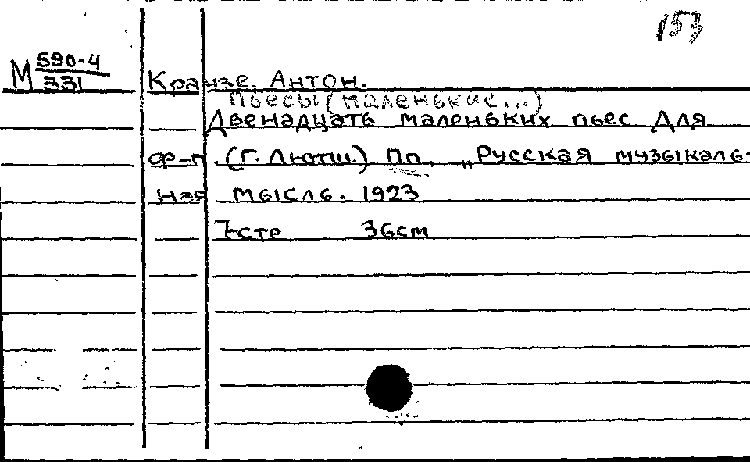 153
М 590-4
331
Краузе, Антон.
Пьесы (маленькие...)
Двенадцать маленьких пьес для
ф-п. (Г. Лютш.) Пг. „Русская музыкаль-
ная мысль. 1923
7 стр 36см